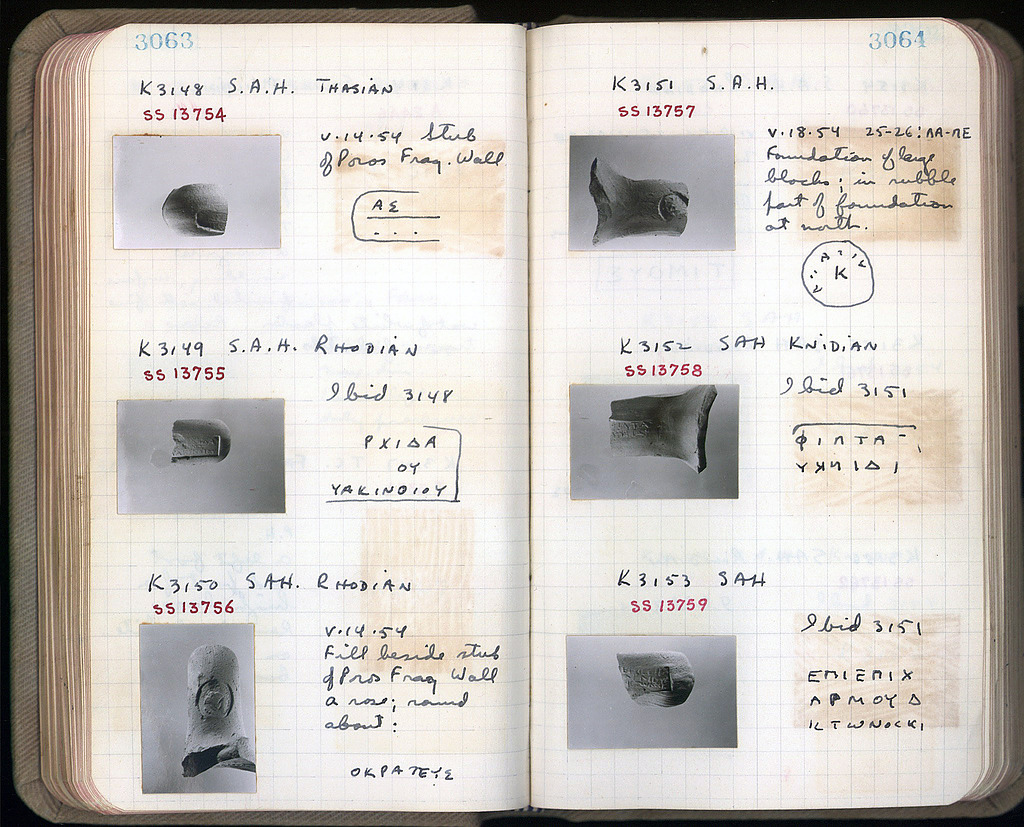 3063
K3148 S.A.H. THASIAN
SS 13754
V.14.54 Stub
of Poros Frag. Wall
ΑΣ
. . .
K3149 S.A.H. RHODIAN
SS 13755
Ibid 3148
ΡΧΙΔΑ
ΟΥ
ΥΑΚΙΝΘΙΟΥ
K3150 SAH. RHODIAN
SS 13756
V.14.54
Fill beside stub
of Pros Frag Wall
a rose; round
about:
ΟΚΡΑΤΕΥΣ
3064
K3151 S.A.H.
SS 13757
V.18.54 25-26:ΛΑ-ΠΕ
Foundation of large
blocks; in rubble
part of foundation
at north.
Κ
K3152 SAH KNIDIAN
SS 13758
Ibid 3151
ΦΙΛΤΑ
K3153 SAH
SS 13759
Ibid 3151
ΕΠΙΕΠΙΧ
ΑΡΜΟΥ Δ
ΙΣΤWΝΟCΚΙ